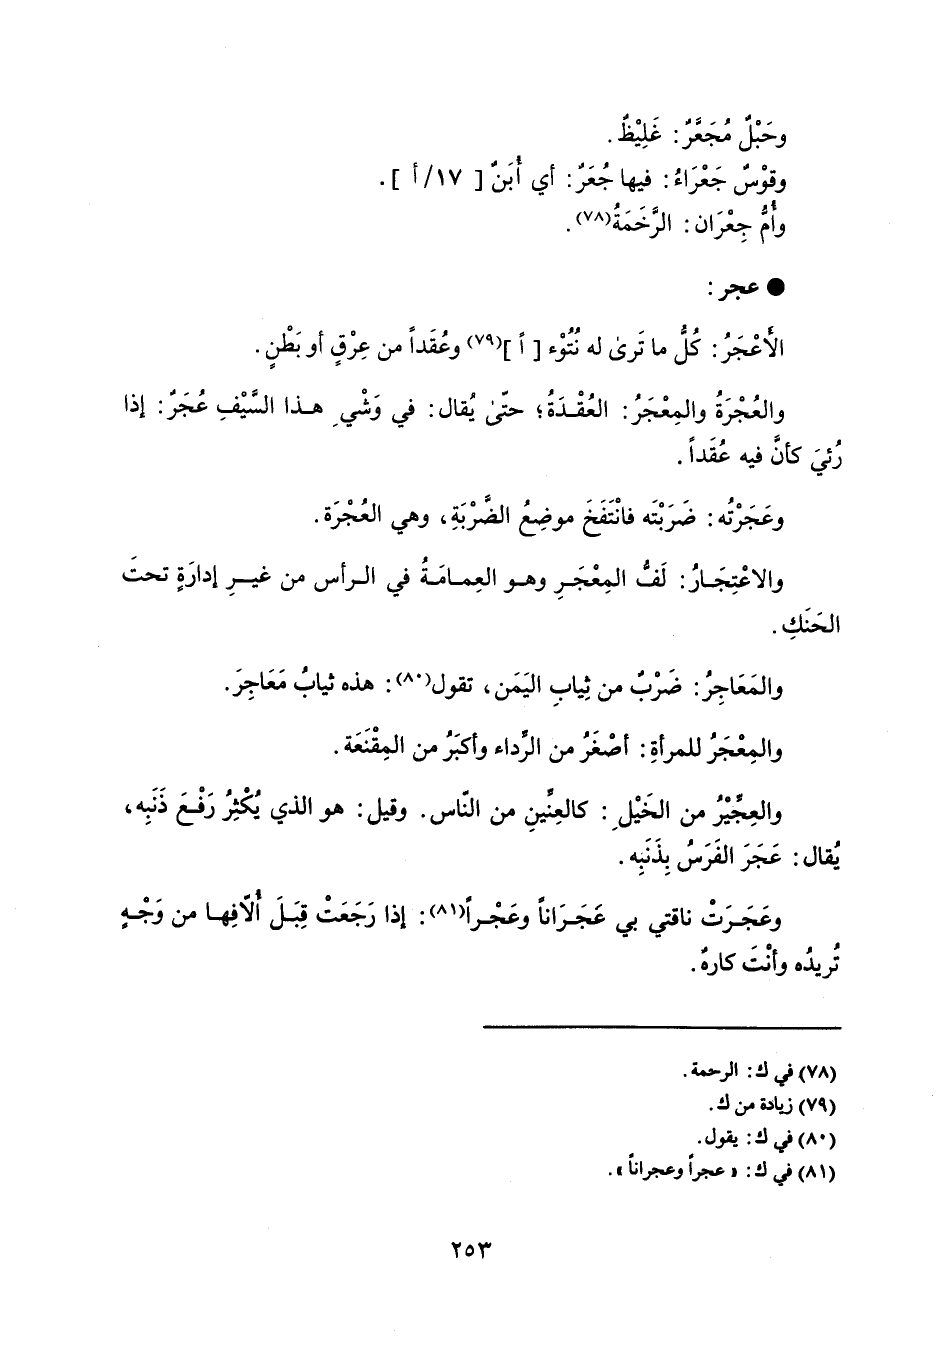 وحَبْلٌ مُجَعَّرٌ: غَلِيْظٌ.
وقَوْسٌ جَعْرَاءُ: فيها جُعَرٌ: أي أُبَنٌ [ ١٧/ أ ].
وأُمُّ جِعْرَان: الرَّخَمَةُ(٧٨).
● عجر:
الأَعْجَرُ: كُلُّ ما تَرىٰ له نُتُوْء [ اً ](٧٩) وعُقَداً من عِرْقٍ أو بَطْنٍ.
والعُجْرَةُ والمِعْجَرُ: العُقْدَةُ؛ حتّىٰ يُقال: في وَشْيِ هـذا السَّيْفِ عُجَرٌ: إذا
رُئيَ كأنَّ فيه عُقَداً.
وعَجَرْتُه: ضَرَبْتَه فانْتَفَخَ موضِعُ الضَّرْبَةِ، وهي العُجْرَة.
والاعْتِجَـارُ: لَفُّ المِعْجَـرِ وهـو العِمـامَـةُ في الـرأس من غيـرِ إدارَةٍ تحتَ
الحَنَكِ.
والمَعَاجِرُ: ضَرْبٌ من ثِيابِ اليَمَن، تقول(٨٠): هذه ثيابُ مَعَاجِرَ.
والمِعْجَرُ للمرأةِ: أصْغَرُ من الرِّداء وأكبَرُ من المِقْنَعَة.
والعِجِّيْرُ من الخَيْلِ: كالعِنِّينِ من النّاس. وقيل: هو الذي يُكْثِرُ رَفْعَ ذَنَبِه،
يُقال: عَجَرَ الفَرَسُ بِذَنَبِه.
وعَجَـرَتْ ناقتي بي عَجَـرَاناً وعَجْـراً(٨١): إذا رَجَعَتْ قِبَـلَ أُلّافِهـا من وَجْـهٍ
تُريدُه وأنْتَ كارهٌ.
(٧٨) في ك: الرحمة.
(٧٩) زيادة من ك.
(٨٠) في ك: يقول.
(٨١) في ك: «عجراً وعجراناً».
٢٥٣